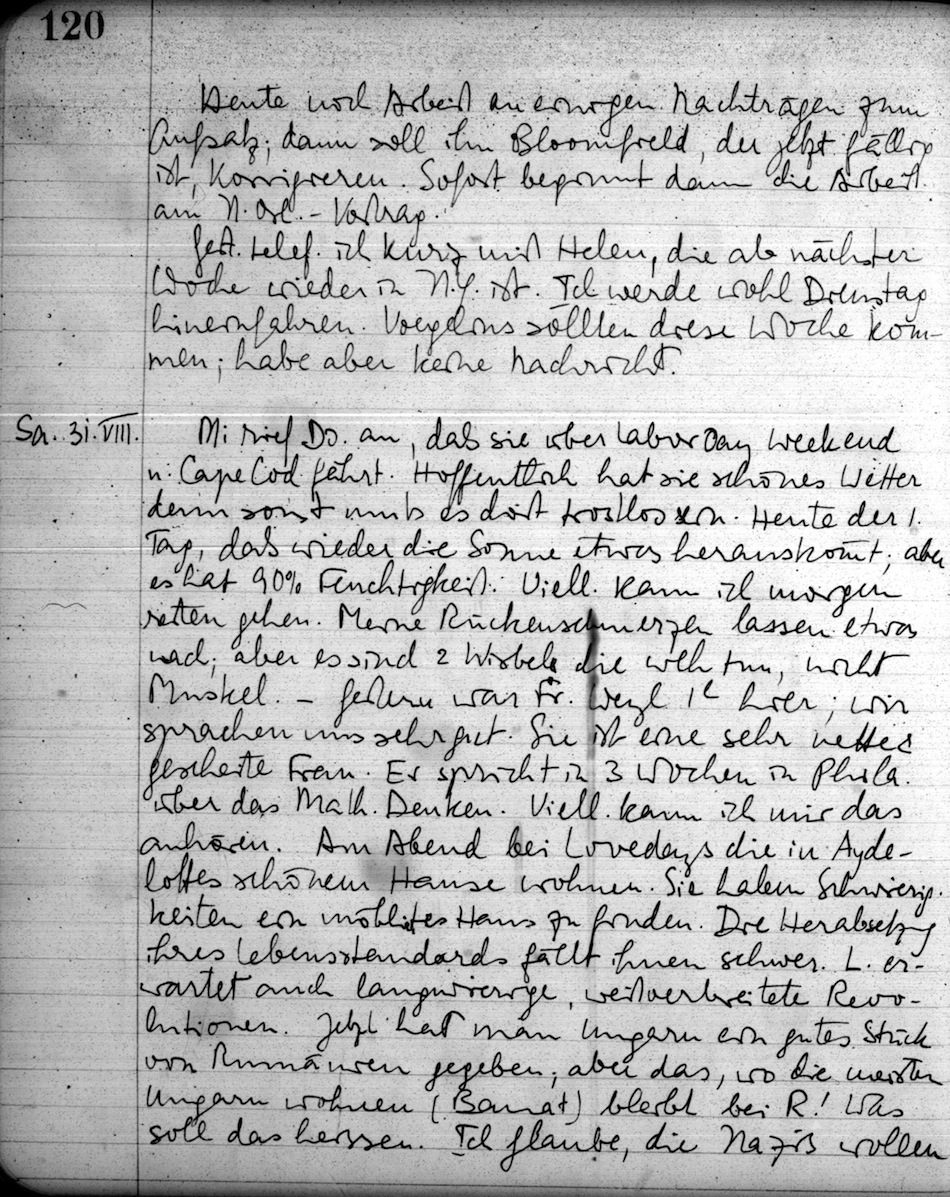 120
Heute noch Arbeit an einigen Nachträgen zum
Aufsatz; dann soll ihn Bloomfield, der jetzt fällig
ist, korrigieren. Sofort beginnt dann die Arbeit
am N. Orl. - Vortrag.
Gest. telef. ich kurz mit Helen, die ab nächster
Woche wieder in N.Y. ist. Ich werde wohl Dienstag
hineinfahren. Voegelins sollten diese Woche kom-
men; habe aber keine Nachricht.
Sa. 31. VIII. Mi rief Do. an, daß sie über Labor Day Weekend
n. Cape Cod fährt. Hoffentlich hat sie schönes Wetter
denn sonst muß es dort trostlos sein. Heute der 1.
Tag, daß wieder die Sonne etwas herauskom̅t; aber
es hat 90% Feuchtigkeit. Viell. kann ich morgen
reiten gehen. Meine Rückenschmerzen lassen etwas
nach; aber es sind 2 Wirbel die weh tun, nicht
Muskel. – Gestern war Fr. Weyl 1ʰ hier; wir
sprachen uns sehr gut. Sie ist eine sehr nette
gescheite Frau. Er spricht in 3 Wochen in Phila.
über das Math. Denken. Viell. kann ich mir das
anhören. Am Abend bei Lovedays die in Ayde-
lottes schönem Hause wohnen. Sie haben Schwierig-
keiten ein möblites Haus zu finden. Die Herabsetzg
ihres Lebensstandards fällt ihnen schwer. L. er-
wartet auch langwierige, weitverbreitete Revo-
lutionen. Jetzt hat man Ungarn ein gutes Stück
von Rumänien gegeben; aber das, wo die meisten
Ungarn wohnen (Banat) bleibt bei R! Was
soll das heissen. Ich glaube, die Nazis wollen